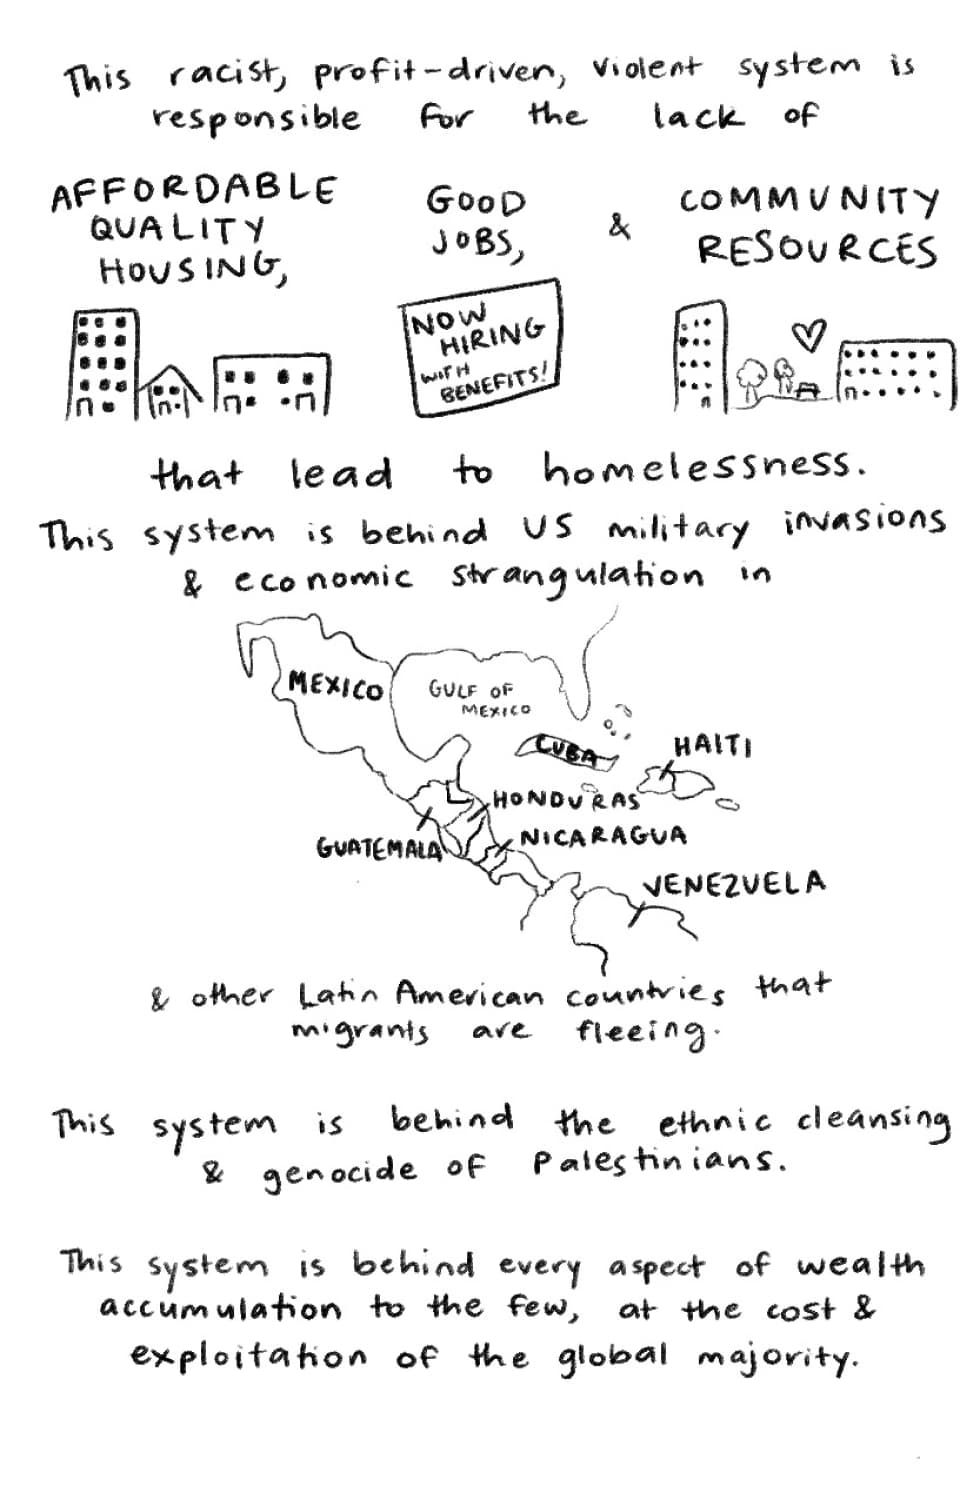 This racist, profit-driven, violent system is
responsible for the lack of
AFFORDABLE
QUALITY
HOUSING,
GOOD
JOBS,
&
COMMUNITY
RESOURCES
NOW
HIRING
WITH
BENEFITS!
that lead to homelessness.
This system is behind US military invasions
& economic strangulation in
MEXICO
GULF OF
MEXICO
CUBA
HAITI
HONDURAS
NICARAGUA
GUATEMALA
VENEZUELA
& other Latin American countries that
migrants are fleeing.
This system is behind the ethnic cleansing
& genocide of Palestinians.
This system is behind every aspect of wealth
accumulation to the few, at the cost &
exploitation of the global majority.